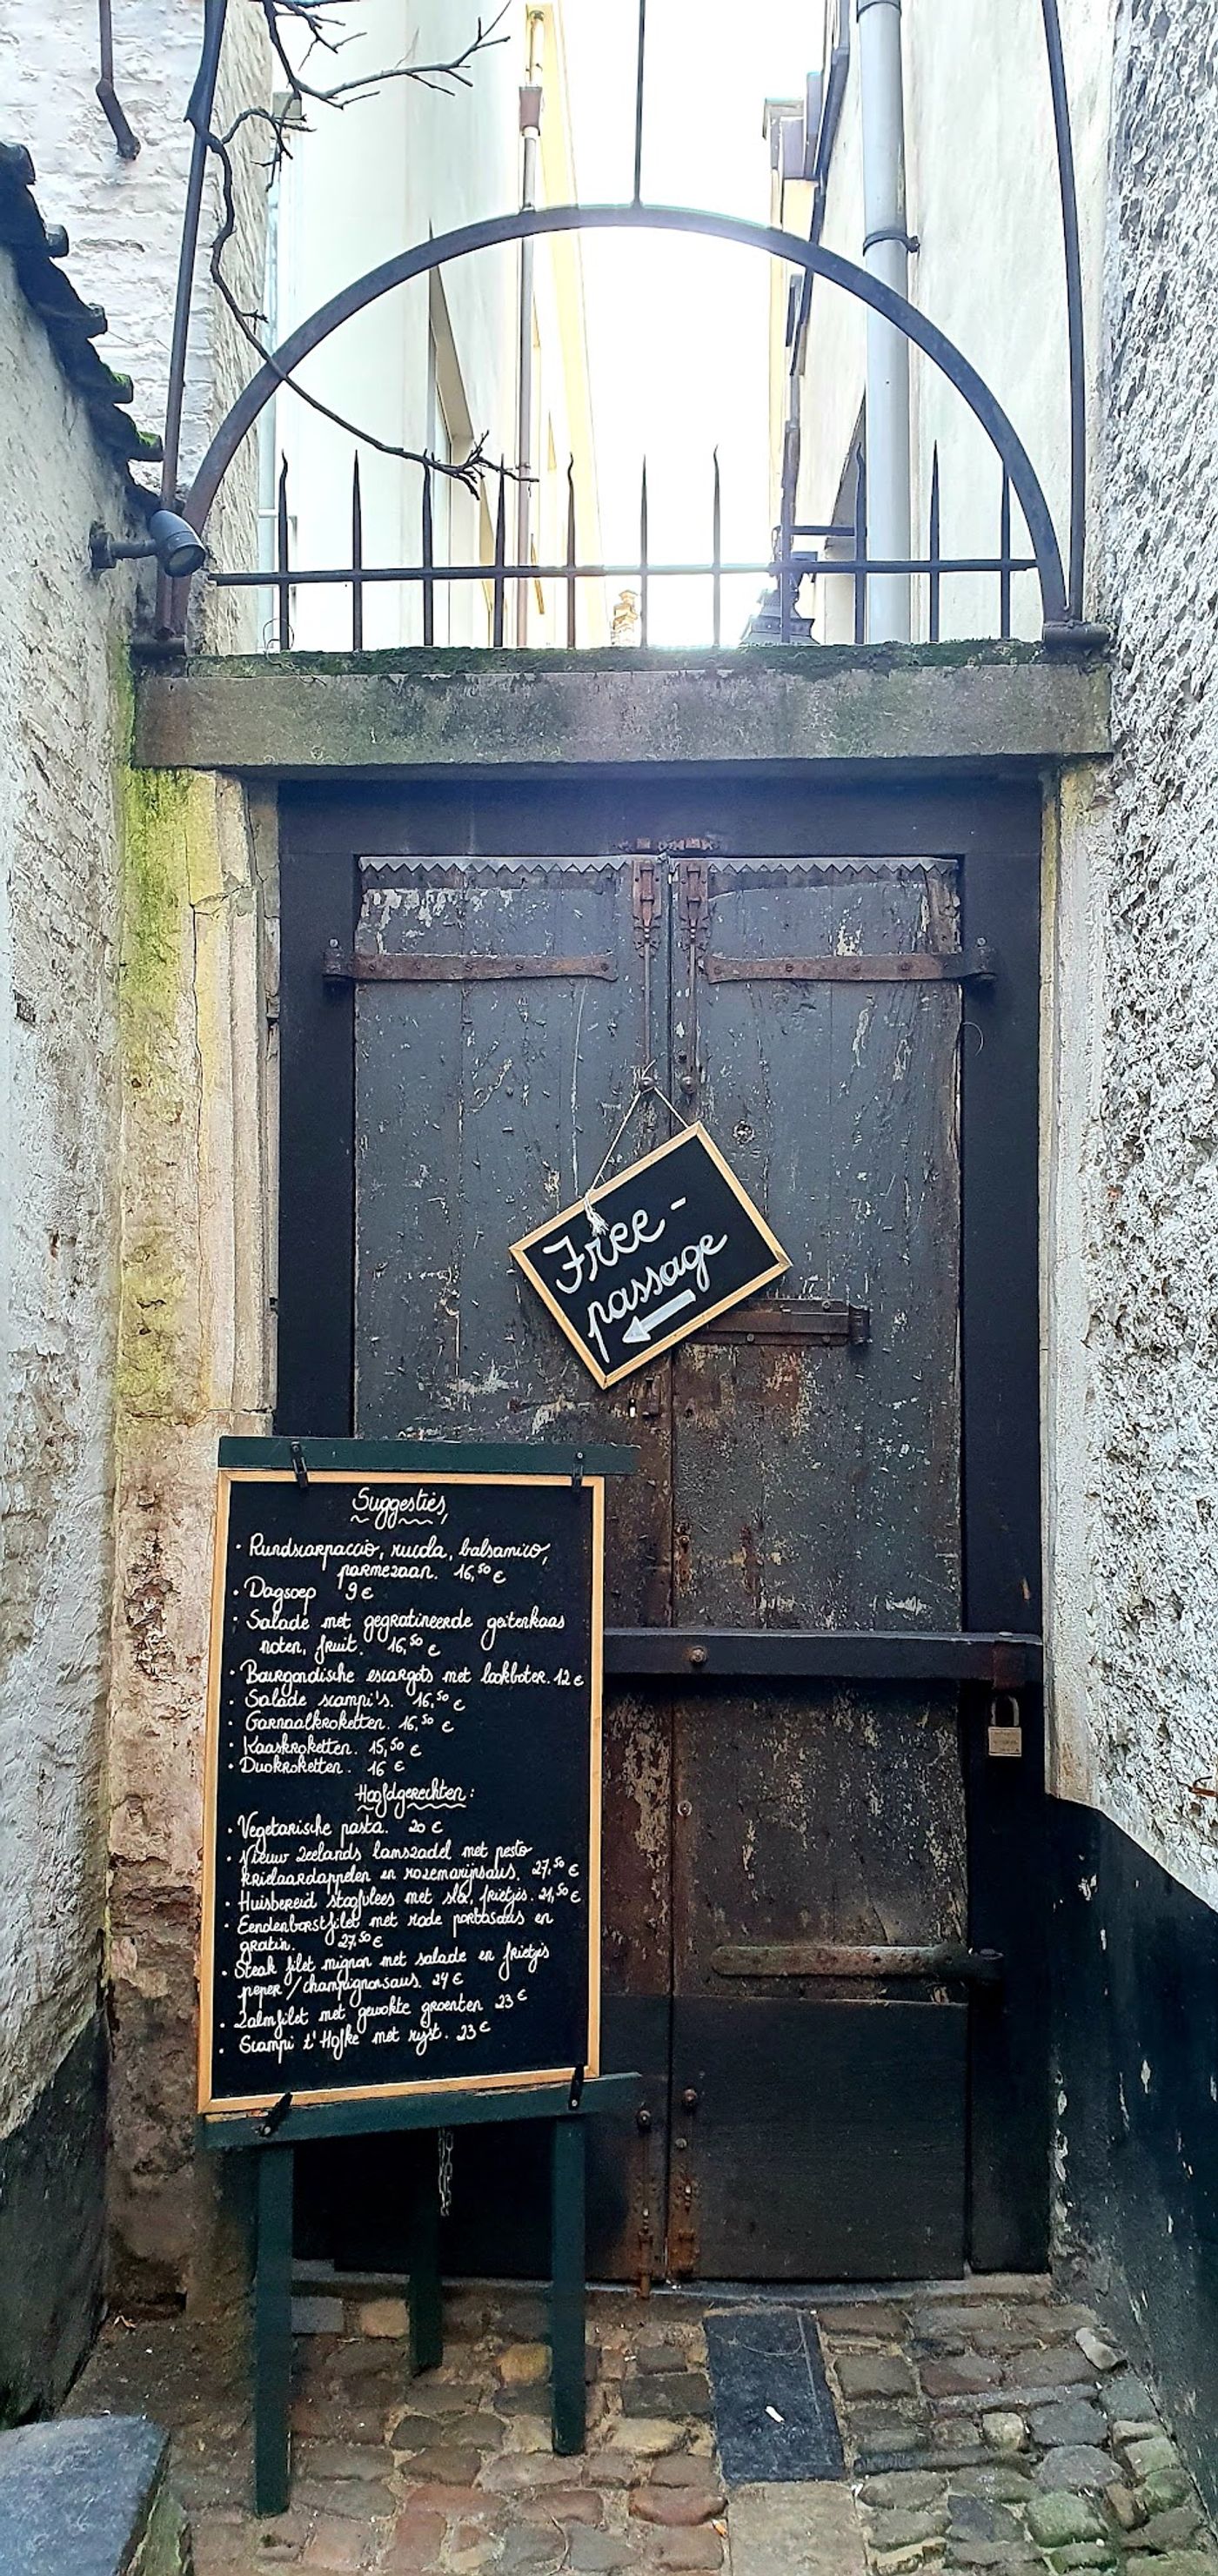 Free-
passage
Suggesties
• Rundscarpaccio, rucola, balsamico,
parmezaan. 16,50 €
• Dagsoep 9 €
• Salade met gegratineerde geitenkaas
noten, fruit. 16,50 €
• Bourgondische escargots met lookboter. 12 €
• Salade scampi's. 16,50 €
• Garnaalkroketten. 16,50 €
• Kaaskroketten. 15,50 €
• Duokroketten. 16 €
Hoofdgerechten:
• Vegetarische pasta. 20 €
• Nieuw Zeelands lamszadel met pesto
krielaardappelen en rozemarijnsaus. 27,50 €
• Huisbereid stoofvlees met sla, frietjes. 21,50 €
• Eendenborstfilet met rode portosaus en
gratin. 27,50 €
• Steak filet mignon met salade en frietjes
peper / champignonsaus. 24 €
• Zalmfilet met gewokte groenten 23 €
• Scampi t'Hofke met rijst. 23 €